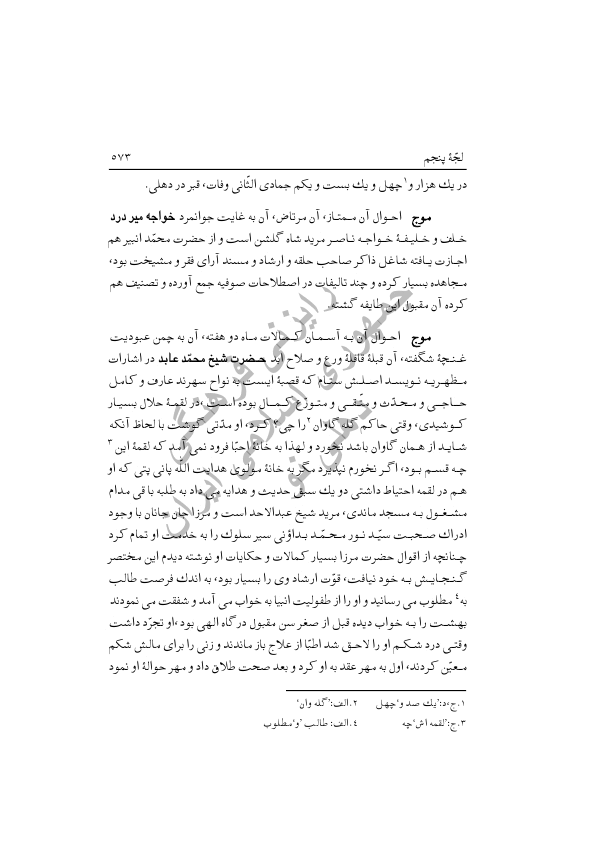 لجّهٔ پنجم ۵۷۳
در یك هزار و۱چهل و یك بست و یكم جمادی الثّانی وفات، قبر در دهلی.
موج احوال آن ممتاز، آن مرتاض، آن به غایت جوانمرد خواجه میر درد
خلف و خلیفهٔ خواجه ناصر مرید شاه گلشن است و از حضرت محمّد انبیر هم
اجازت یافته شاغل ذاكر صاحب حلقه و ارشاد و مسند آرای فقر و مشیخت بود،
مجاهده بسیار كرده و چند تالیفات در اصطلاحات صوفیه جمع آورده و تصنیف هم
كرده آن مقبول این طایفه گشته.
موج احوال آن به آسمان كمالات ماه دو هفته، آن به چمن عبودیت
غنچهٔ شگفته، آن قبلهٔ قافلهٔ ورع و صلاح آید حضرت شیخ محمّد عابد در اشارات
مظهریه نویسد اصلش ستام كه قصبهٔ ایست به نواح سهرند عارف و كامل
حاجی و محدّث و متّقی و متورّع كمال بوده است، در لقمهٔ حلال بسیار
كوشیدی، وقتی حاكم گله گاوان۲را چی؟ كرد، او مدّتی گوشت با لحاظ آنكه
شاید از همان گاوان باشد نخورد و لهذا به خانهٔ احبّا فرود نمی آمد كه لقمهٔ این۳
چه قسم بود، اگر نخورم نپذیرد مگر به خانهٔ مولوی هدایت الله پانی پتی كه او
هم در لقمه احتیاط داشتی دو یك سبق حدیث و هدایه می داد به طلبه باقی مدام
مشغول به مسجد ماندی، مرید شیخ عبدالاحد است و مرزا جان جانان با وجود
ادراك صحبت سیّد نور محمّد بداؤنی سیر سلوك را به خدمت او تمام كرد
چنانچه از اقوال حضرت مرزا بسیار كمالات و حكایات او نوشته دیدم این مختصر
گنجایش به خود نیافت، قوّت ارشاد وی را بسیار بود، به اندك فرصت طالب
به۴ مطلوب می رسانید و او را از طفولیت انبیا به خواب می آمد و شفقت می نمودند
بهشت را به خواب دیده قبل از صغر سن مقبول درگاه الهی بود ،او تجرّد داشت
وقتی درد شكم او را لاحق شد اطبّا از علاج باز ماندند و زنی را برای مالش شكم
معیّن كردند، اول به مهر عقد به او كرد و بعد صحت طلاق داد و مهر حوالهٔ او نمود
۱.ج،د:'یك صد و'چهل ۲.الف:'گله وان'
۳.ج:'لقمه اش'چه ۴.الف: طالب 'و'مطلوب
رایزنی فرهنگی
جمهوری اسلامی ایران
دهلی نو